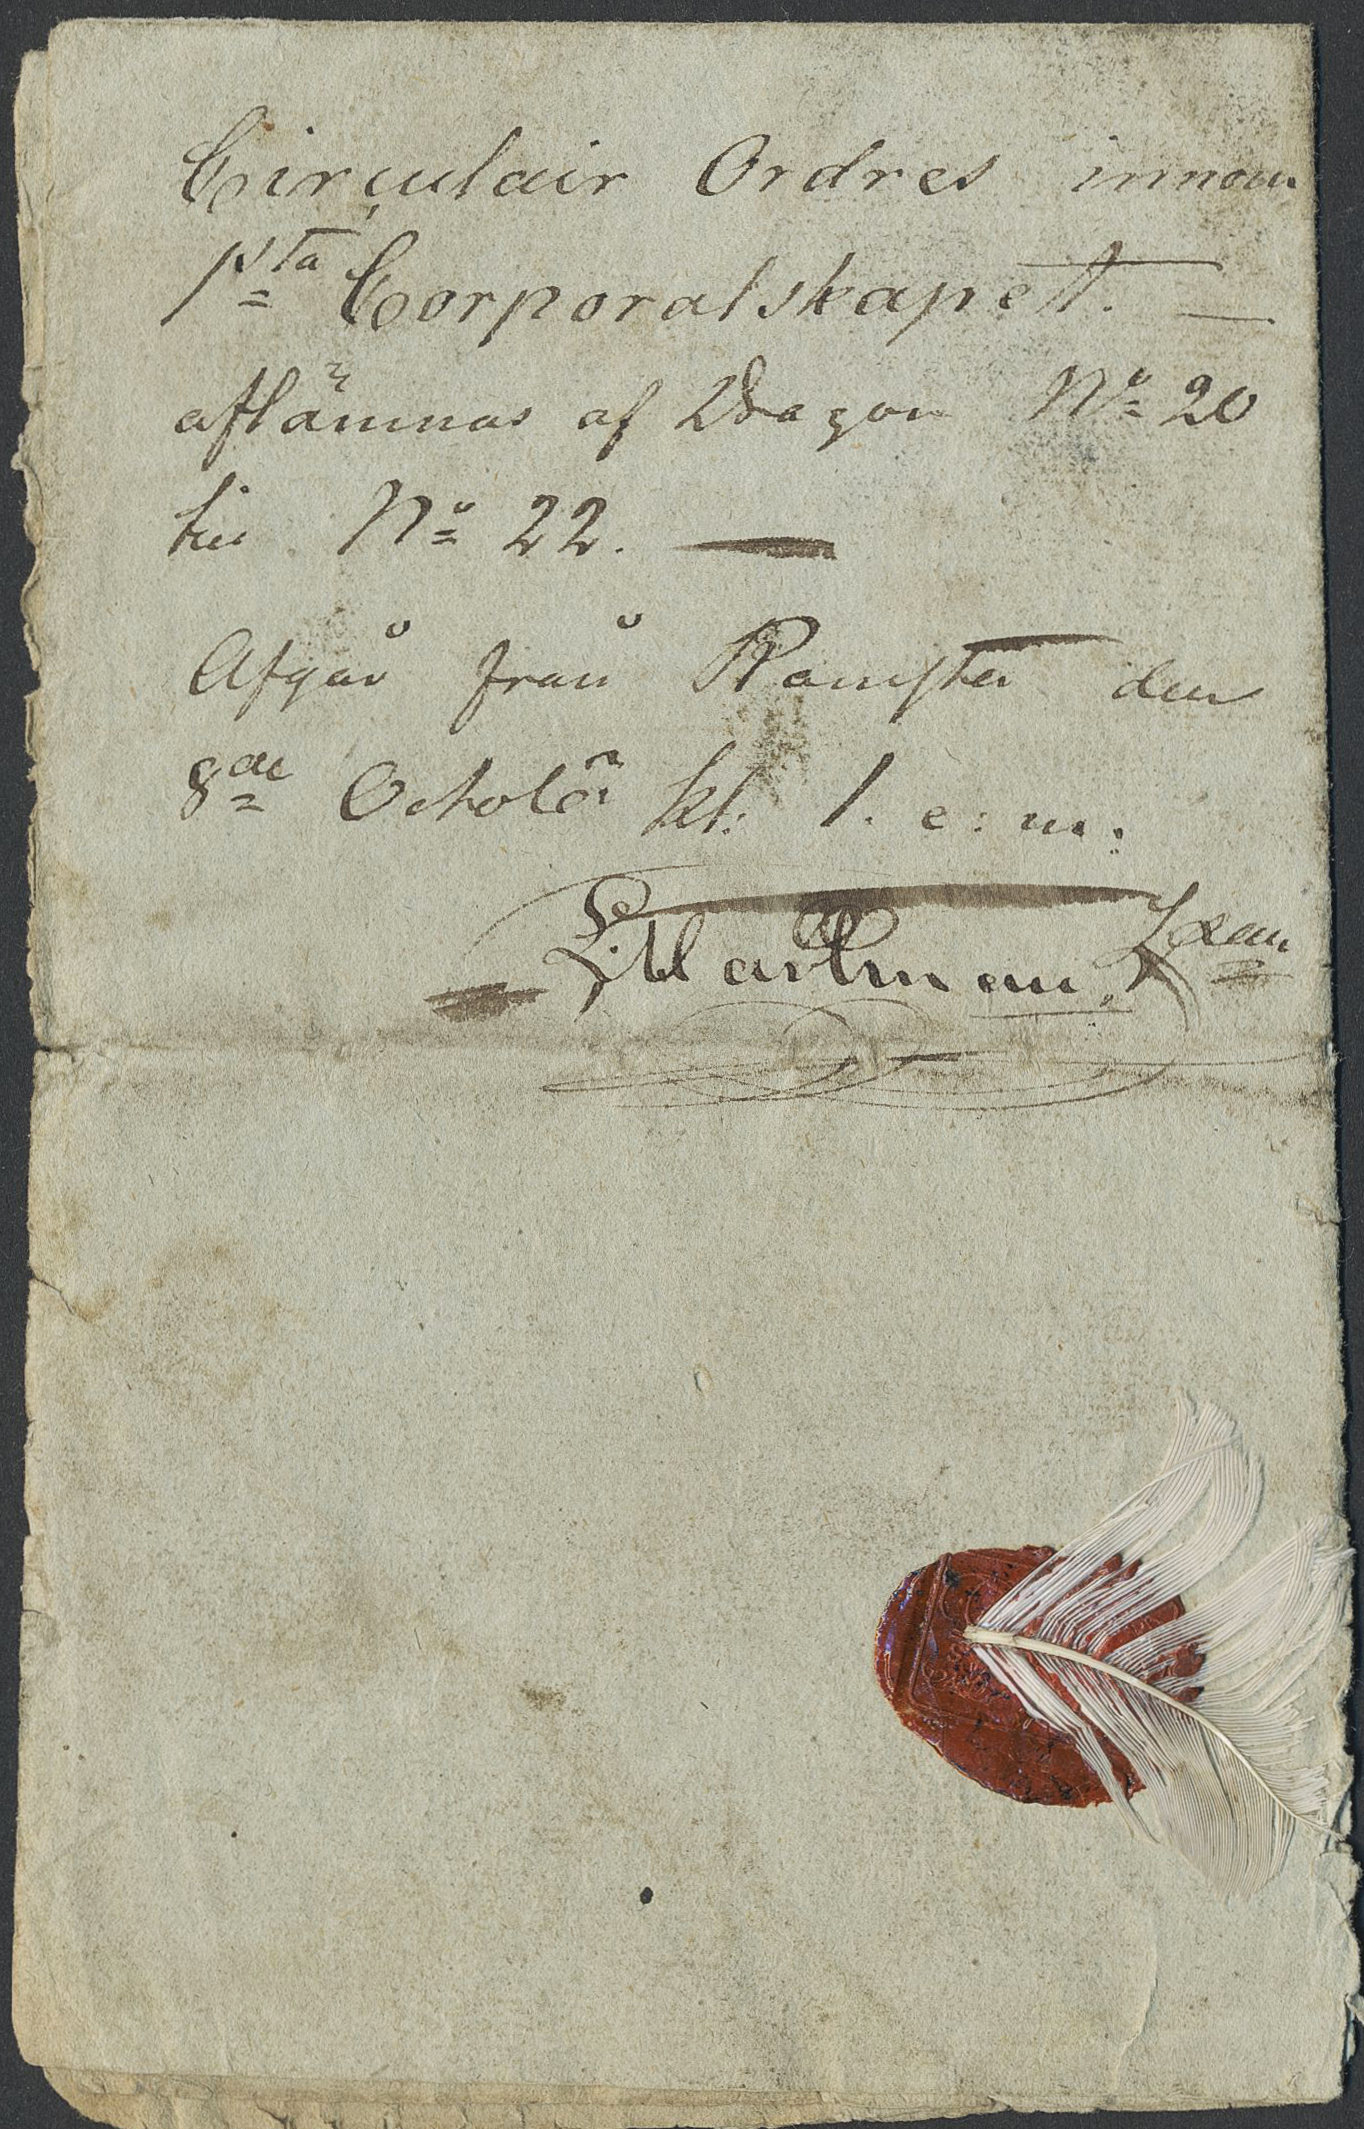 Circulair Ordres innom
1sta Corporalskapett.
aflämnas af Dragon No 20
till No 22.
Afgår från Ramsta den
8de Octobr kl: 1. e: m: